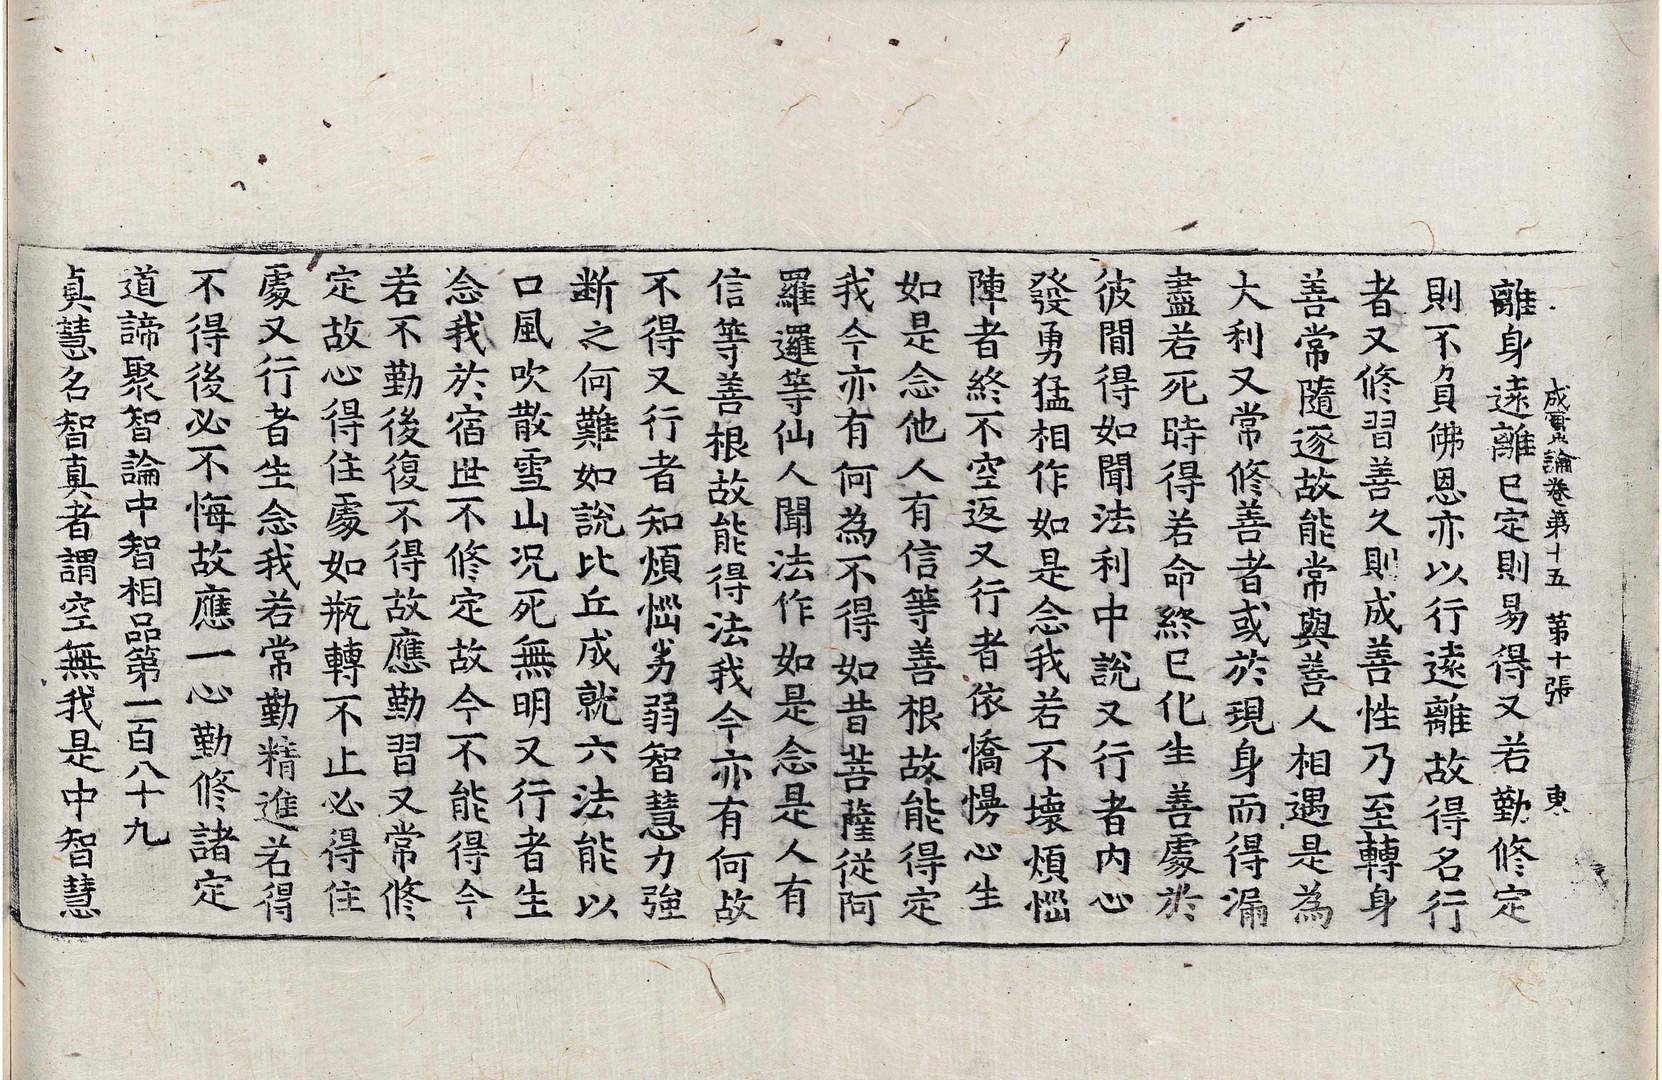 成實論卷第十五　第十張　東
離身遠離已定則易得又若勤修定
則不負佛恩亦以行遠離故得名行
者又修習善久則成善性乃至轉身
善常隨逐故能常與善人相遇是為
大利又常修善者或於現身而得漏
盡若死時得若命終已化生善處於
彼間得如聞法利中說又行者內心
發勇猛相作如是念我若不壞煩惱
陣者終不空返又行者依憍慢心生
如是念他人有信等善根故能得定
我今亦有何為不得如昔菩薩從阿
羅邏等仙人聞法作如是念是人有
信等善根故能得法我今亦有何故
不得又行者知煩惱劣弱智慧力強
断之何難如說比丘成就六法能以
口風吹散雪山况死無明又行者生
念我於宿世不修定故今不能得今
若不勤後復不得故應勤習又常修
定故心得住處如瓶轉不止必得住
處又行者生念我若常勤精進若得
不得後必不悔故應一心勤修諸定
道諦聚智論中智相品第一百八十九
真慧名智真者謂空無我是中智慧